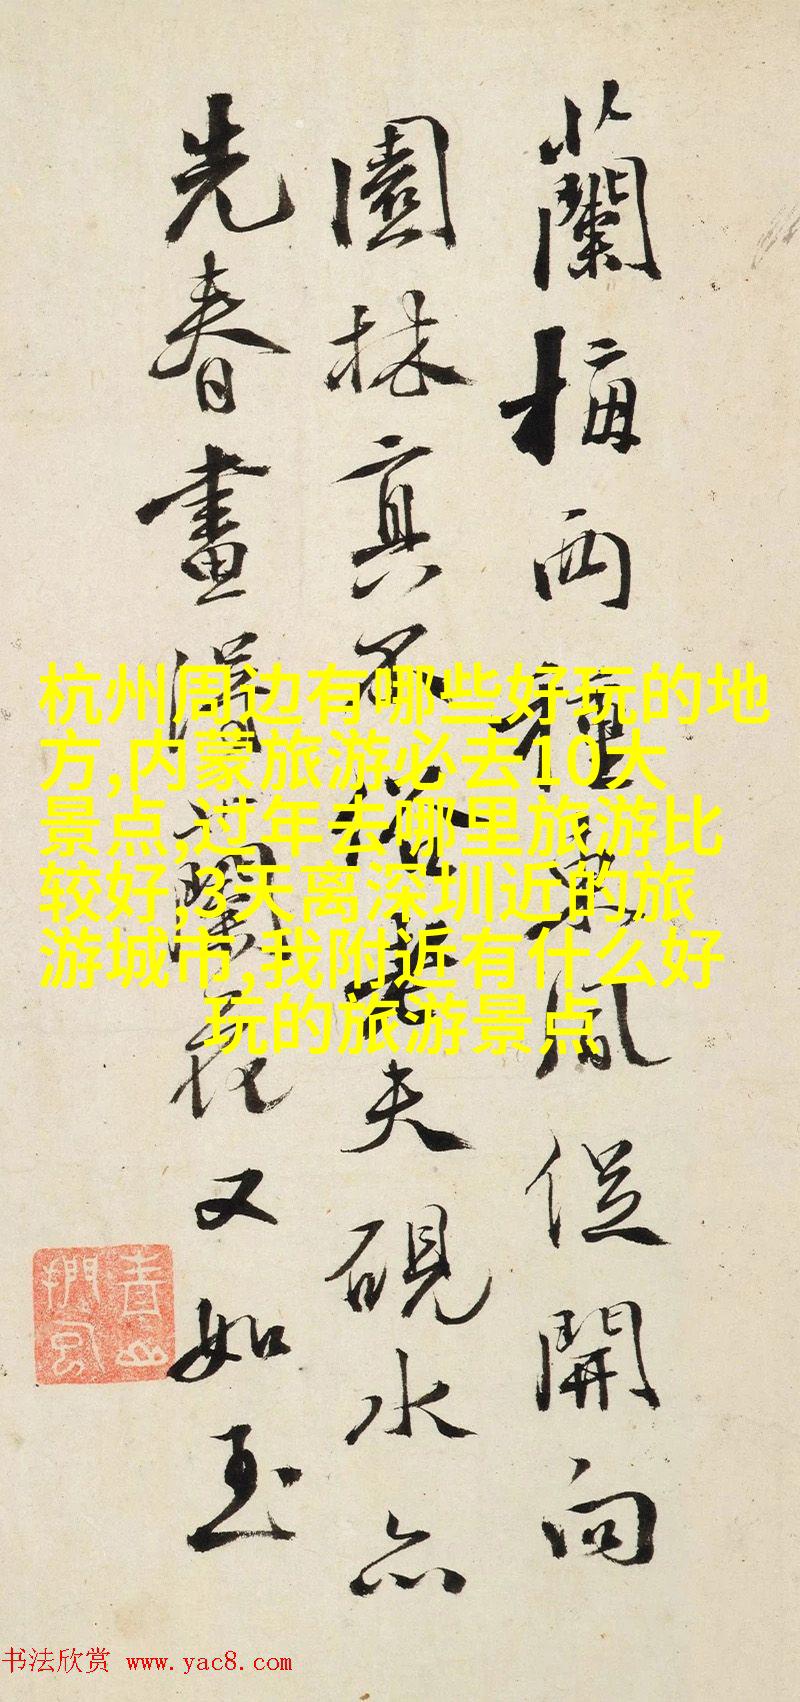 蘭梅两種東風開向
園林真不老夫硯水亦
先春畫蘭花又如玉
杭州周边有哪些好玩的地
方,内蒙旅游必去10大
景点,过年去哪里旅游比
较好,3天离深圳近的旅
游城市,我附近有什么好
玩的旅游景点
书法欣赏 www.yac8.com